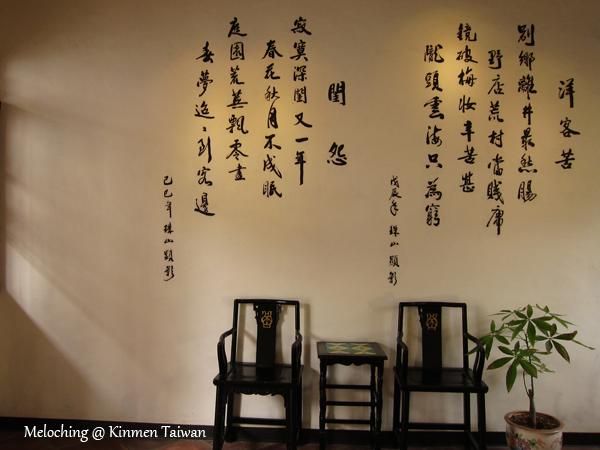 洋客苦
別鄉離井最愁腸
野店荒村當賤庸
鏡破梅妝辛苦甚
隴頭雲海只為窮
戊辰年 珠山顯影
閨怨
寂寞深閨又一年
春花秋月不成眠
庭園荒蕪飄零盡
春夢迢迢到客邊
己巳年 珠山顯影
Meloching @ Kinmen Taiwan